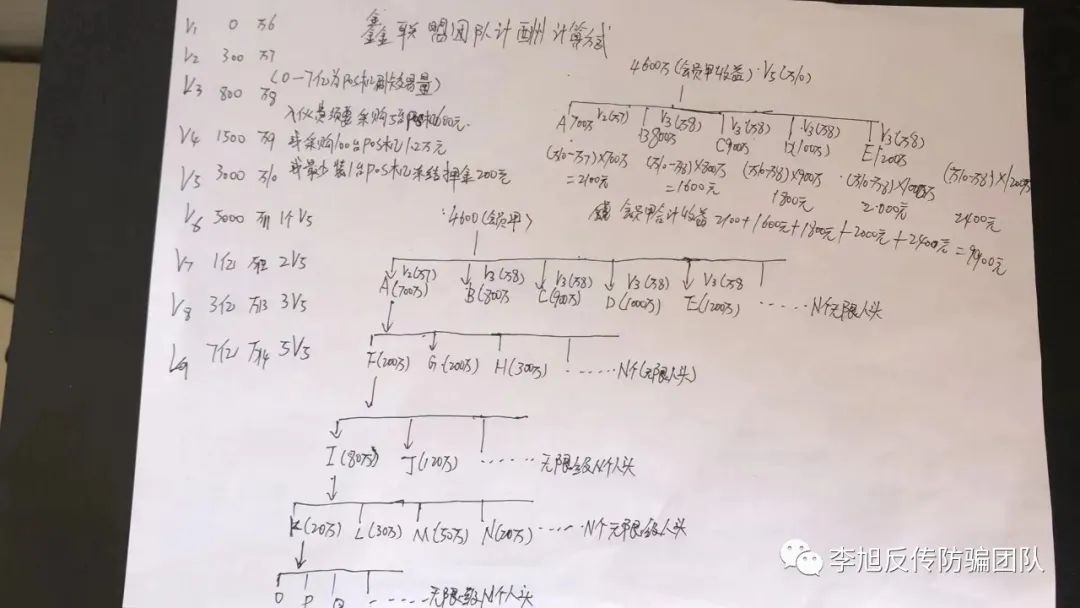 鑫联盟团队计酬计算方式
V1 0 万6
V2 300 万7
(0-7亿为POS机刷卡交易量)
V3 800 万8
入伙是须要采购5台POS机600元.
V4 1500 万9 或采购100台POS机1.2万元
V5 3000 万10 或最少装1台POS机冻结押金200元
V6 5000 万11 1个V5
V7 1亿 万12 2V5
V8 3亿 万13 3V5
V9 7亿 万14 5V5
4600万(会员甲收益)·V5(万10)
V2(万7) V3(万8) V3(万8) V3(万8) V3(万8)
A 700万 B 800万 C 900万 D(1000万) E 1200万
(万10-万7)×700万 (万10-万8)×800万 (万10-万8)×900万 (万10-万8)×1000万 (万10-万8)×1200万
=2100元 =1600元 1800元 2000元 2400元
会员甲合计收益 2100+1600元+1800元+2000元+2400元=9900元
·4600(会员甲)
V2(万7) V3(万8) V3(万8) V3(万8) V3(万8
A(700万) B(800万 C(900万) D(1000万) E(1200万) ······N个无限人头
F(200万) G·(200万) H(300万) ······N个(无限人头)
I(80万) J(120万) ······无限级N个人头
K(20万) L(30万) M(50万) N(20万) ·····N个无限级人头
O P Q ······无限级N个人头
李旭反传防骗团队